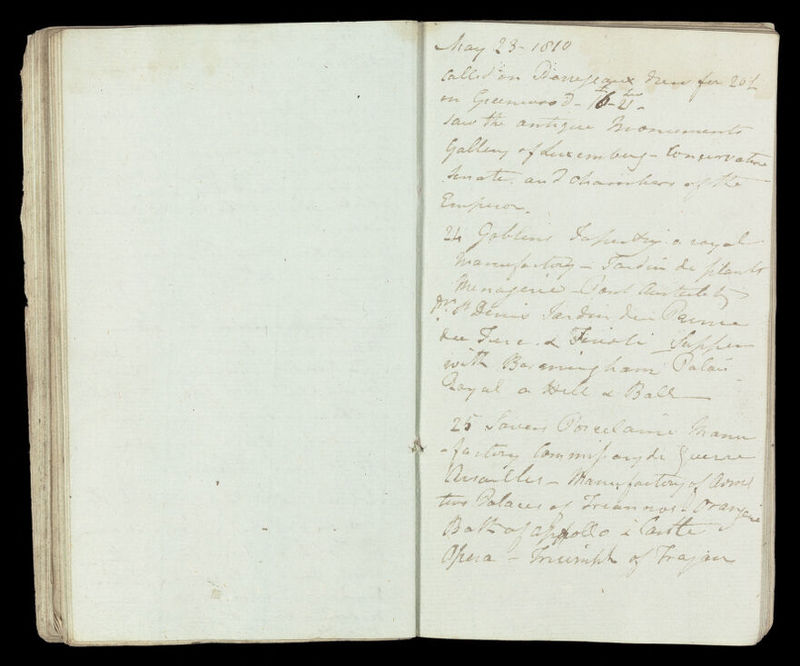 May 23 - 1810
called on drew for 20£
on Greenwood -
Saw the antique Monuments
Gallery of Luxemburg - Conservative
Senate. and Chambers of the
Emperor.
24 Goblins Tapestry. a royal
Manufactory - Jardin de plants
Menagerie - Pont Austerlitz
St Denis Jardin du Prince
Turc. & Tivoli Supper
with Palais
Royal a Hell & Ball
25 Sevres Porcelaine Manu
-factory Commissary de Guerre
Versailles - Manufactory of Arms
two Palaces of Triannos. Orangerie
Bath of Appollo & Castle
Opera - Triumph of Trajan